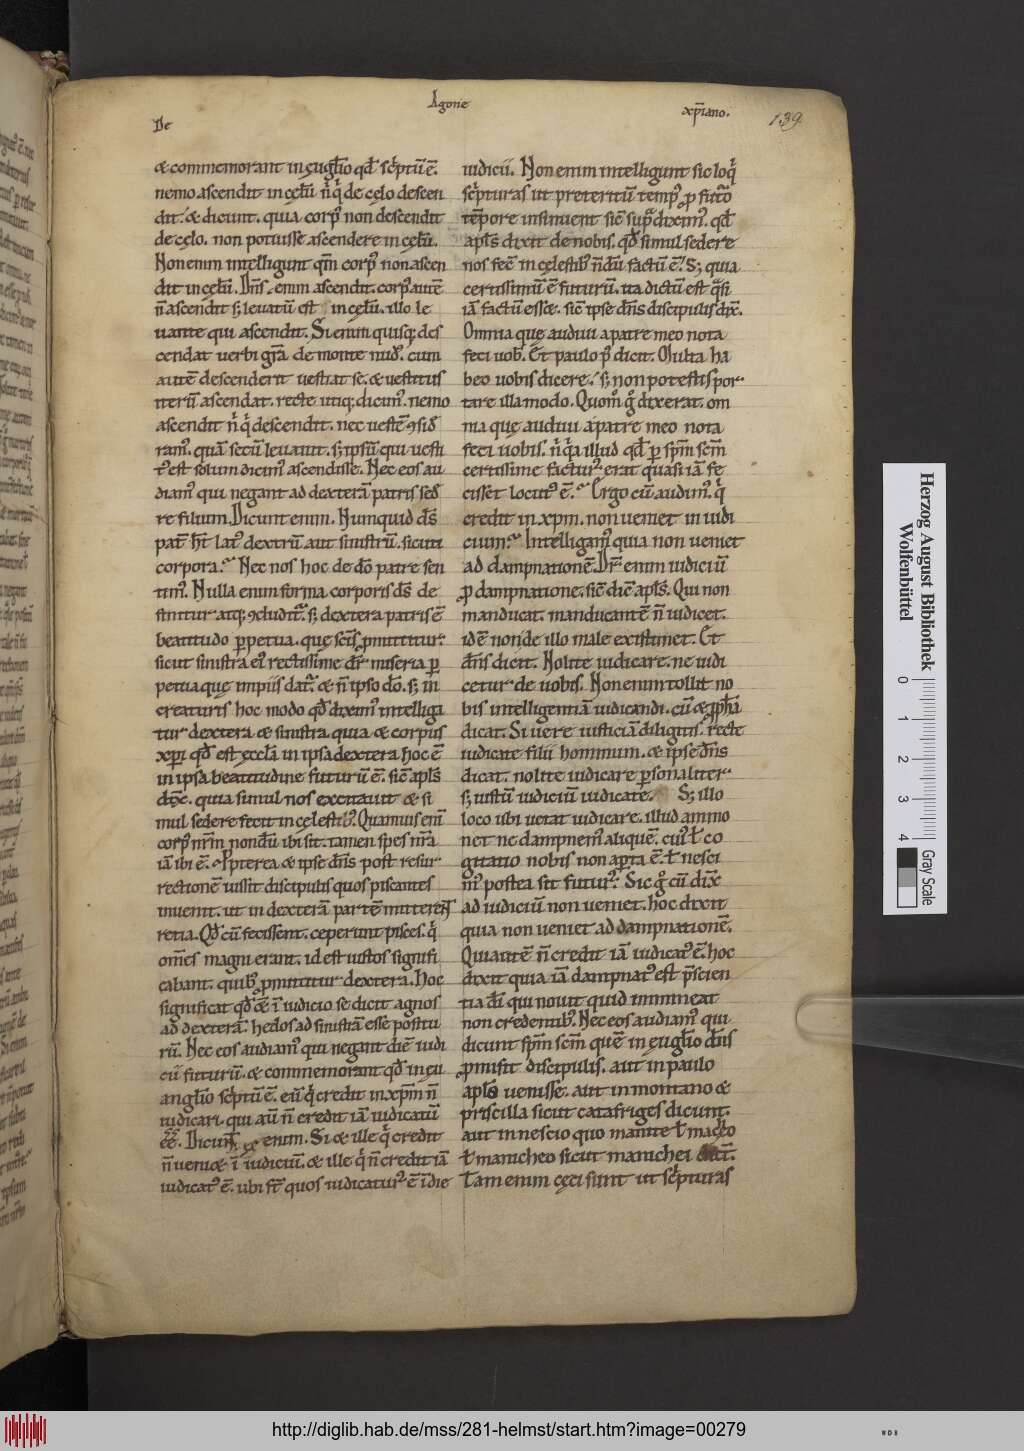 De Agone xp̄iano. 139
& commemorant in euglīo qd̄ sc̄ptū ē.
nemo ascendit in cęlū n̄ q̇ de cęlo descen
dit. & dicunt. quia corp' non descendit
de cęlo. non potuisse ascendere in cęlū.
Non enim intelligunt qm̄ corp' non ascen
dit in cęlū. Dn̄s enim ascendit. corp' autē
n̄ ascendit s; leuatū est in cęlū. illo le
uante qui ascendit. Si enim quisq; des
cendat uerbi gr̄a de monte nud'. cum
autē descenderit uestiat se. & uestitus
iterū ascendat. recte utiq; dicim'. nemo
ascendit n̄ q̇ descendit. nec uestē ꝯsid̄
ram'. quā secū leuauit. s; ipsū qui uesti
t' est solum dicim' ascendisse. Nec eos au
diam' qui negant ad dexterā patris sed̄
re filium. Dicunt enim. Numquid d̄s
pat̄ h̄t lat' dextrū. aut sinistrū. sicuti
corpora. Nec nos hoc de dō patre sen
tim'. Nulla enim forma corporis d̄s de
finitur atq; ꝯcludit̄. s; dextera patris ē
beatitudo ꝑpetua. quę sc̄is ꝓmittitur.
sicut sinistra ei' rectissime dr̄ miseria ꝑ
petua quę impiis dat̄. & n̄ ipso dō. s; in
creaturis hoc modo qd̄ diximus intelliga
tur dextera & sinistra. quia & corpus
xp̄i qd̄ est eccl̄a in ipsa dextera hoc ē
in ipsa beatitudine futurū ē. sic̄ apl̄s
dix̄. quia simul nos excitauit & si
mul sedere fecit in cęlestib'. Quamuis enī
corp' nr̄m nondū ibi sit. tamen spes nr̄a
iā ibi ē. Ꝓpterea & ipse dn̄s post resur
rectionē iussit discipulis quos piscantes
inuenit. ut in dexterā partē mitterent
retia. Qd̄ cū fecissent. ceperunt pisces. q̇
om̄es magni erant. id est iustos signifi
cabant. quib' ꝓmittitur dextera. Hoc
significat qd̄ & ī iudicio se dicit agnos
ad dexterā. hedos ad sinistrā esse positu
rū. Nec eos audiam' qui negant diē iudi
cii futurū. & commemorant qd̄ in eu
anglīo sc̄ptū ē. eū q̇ credit in xp̄m n̄
iudicari. qui aū n̄ credit iā iudicatū
ēē. Dicunt enim. Si & ille q̇ credit
n̄ ueni& ī iudiciū. & ille q̇ n̄ credit iā
iudicat' ē. ubi st̄ quos iudicatur' ē ī die
iudicii. Non enim intelligunt sic loq̇
sc̄pturas ut preteritū temp' ꝓ futō
tēpore insinuent sic̄ supra dixim'. qd̄
apl̄s dixit de nobis. qd̄ simul sedere
nos fec̄ in cęlestib' n̄dū factū ē. S; quia
certissimū ē futurū. ita dictū est q̄si
iā factū esset. sic̄ ipse dn̄s discipulis dix̄.
Omnia quę audiui a patre meo nota
feci uob'. Et paulo p' dicit. Multa ha
beo uobis dicere. s; non potestis por
tare illa modo. Quom' g̊ dixerat. om
nia quę audiui a patre meo nota
feci uobis. n̄ q̇a illud qd̄ ꝑ sp̄m sc̄m
certissime factur' erat quasi iā fe
cisset locut' ē. Ergo cū audim'. q̇
credit in xp̄m. non ueniet in iudi
cium. Intelligam' quia non ueniet
ad dampnationē. Dr̄ enim iudiciū
ꝓ dampnatione. sic̄ dic̄ apl̄s. Qui non
manducat. manducantē n̄ iudicet.
id ē non de illo male existimet. Et
dn̄s dicit. Nolite iudicare. ne iudi
cetur de uobis. Non enim tollit no
bis intelligentiā iudicandi. cū & ꝓph̄a
dicat. Si uere iusticiā diligitis. recte
iudicate filii hominum. & ipse dn̄s
dicat. nolite iudicare ꝑsonaliter
s; iustū iudiciū iudicate. S; illo
loco ubi uetat iudicare. illud ammo
net ne dampnem' aliquē. cui' ł co
gitatio nobis non aꝑta ē. ł nesci
m' postea sit futur'. Sic g̊ cū dix̄
ad iudiciū non ueniet. hoc dixit
quia non ueniet ad dampnationē.
Qui autē n̄ credit iā iudicat' ē. hoc
dixit quia iā dampnat' est p̄scien
tia dī qui nouit quid immineat
non credentib'. Nec eos audiam' qui
dicunt sp̄m sc̄m quē in euglīo dn̄s
ꝓmisit discipulis. aut in paulo
aplo uenisse. aut in montano &
priscilla sicut catafriges dicunt.
aut in nescio quo manite ł macheo
ł manicheo sicut manichei dicūt.
Tam enim cęci sunt ut sc̄pturas
Herzog August Bibliothek
Wolfenbüttel
0 1 2 3 4
Gray Scale
http://diglib.hab.de/mss/281-helmst/start.htm?image=00279